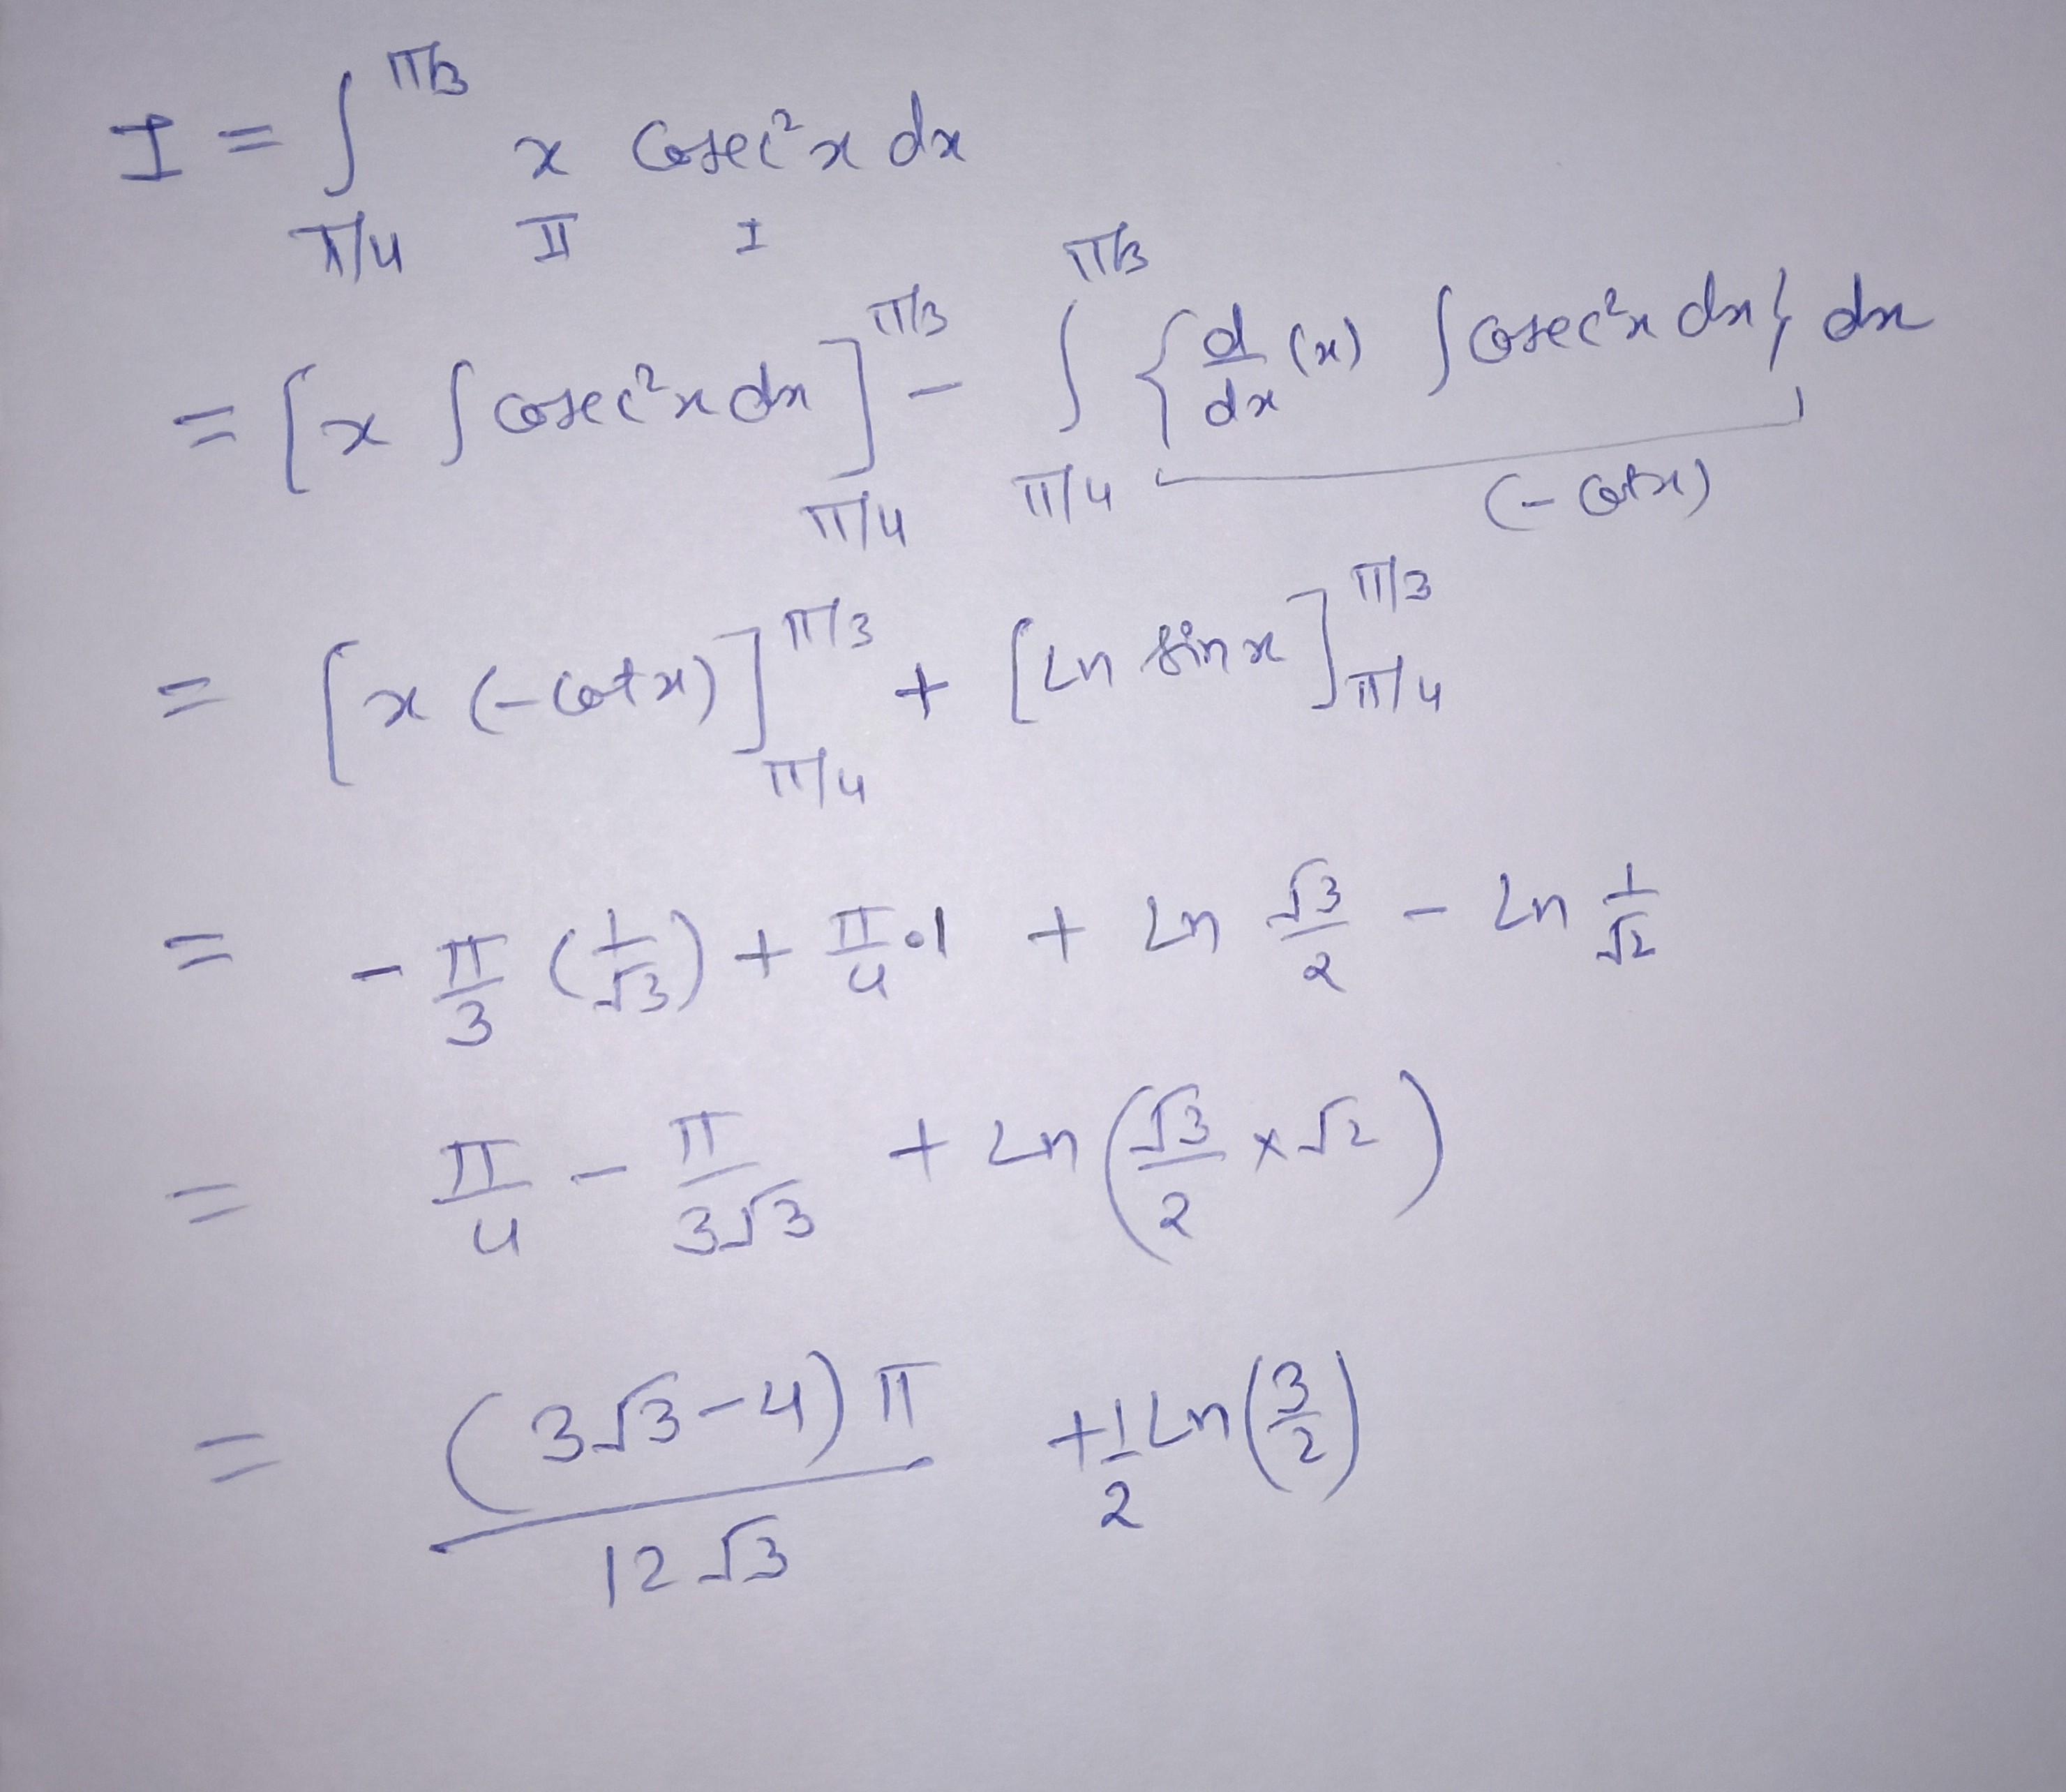 I = ∫_{π/4}^{π/3} x Cosec²x dx
II I
= [x ∫cosec²x dx]_{π/4}^{π/3} - ∫_{π/4}^{π/3} {d/dx (x) ∫cosec²x dx} dx
(-cotx)
= [x (-cotx)]_{π/4}^{π/3} + [ln sinx]_{π/4}^{π/3}
= -π/3 (1/√3) + π/4 · 1 + ln √3/2 - ln 1/√2
= π/4 - π/3√3 + ln(√3/2 × √2)
= (3√3-4)π/12√3 + 1/2 ln(3/2)